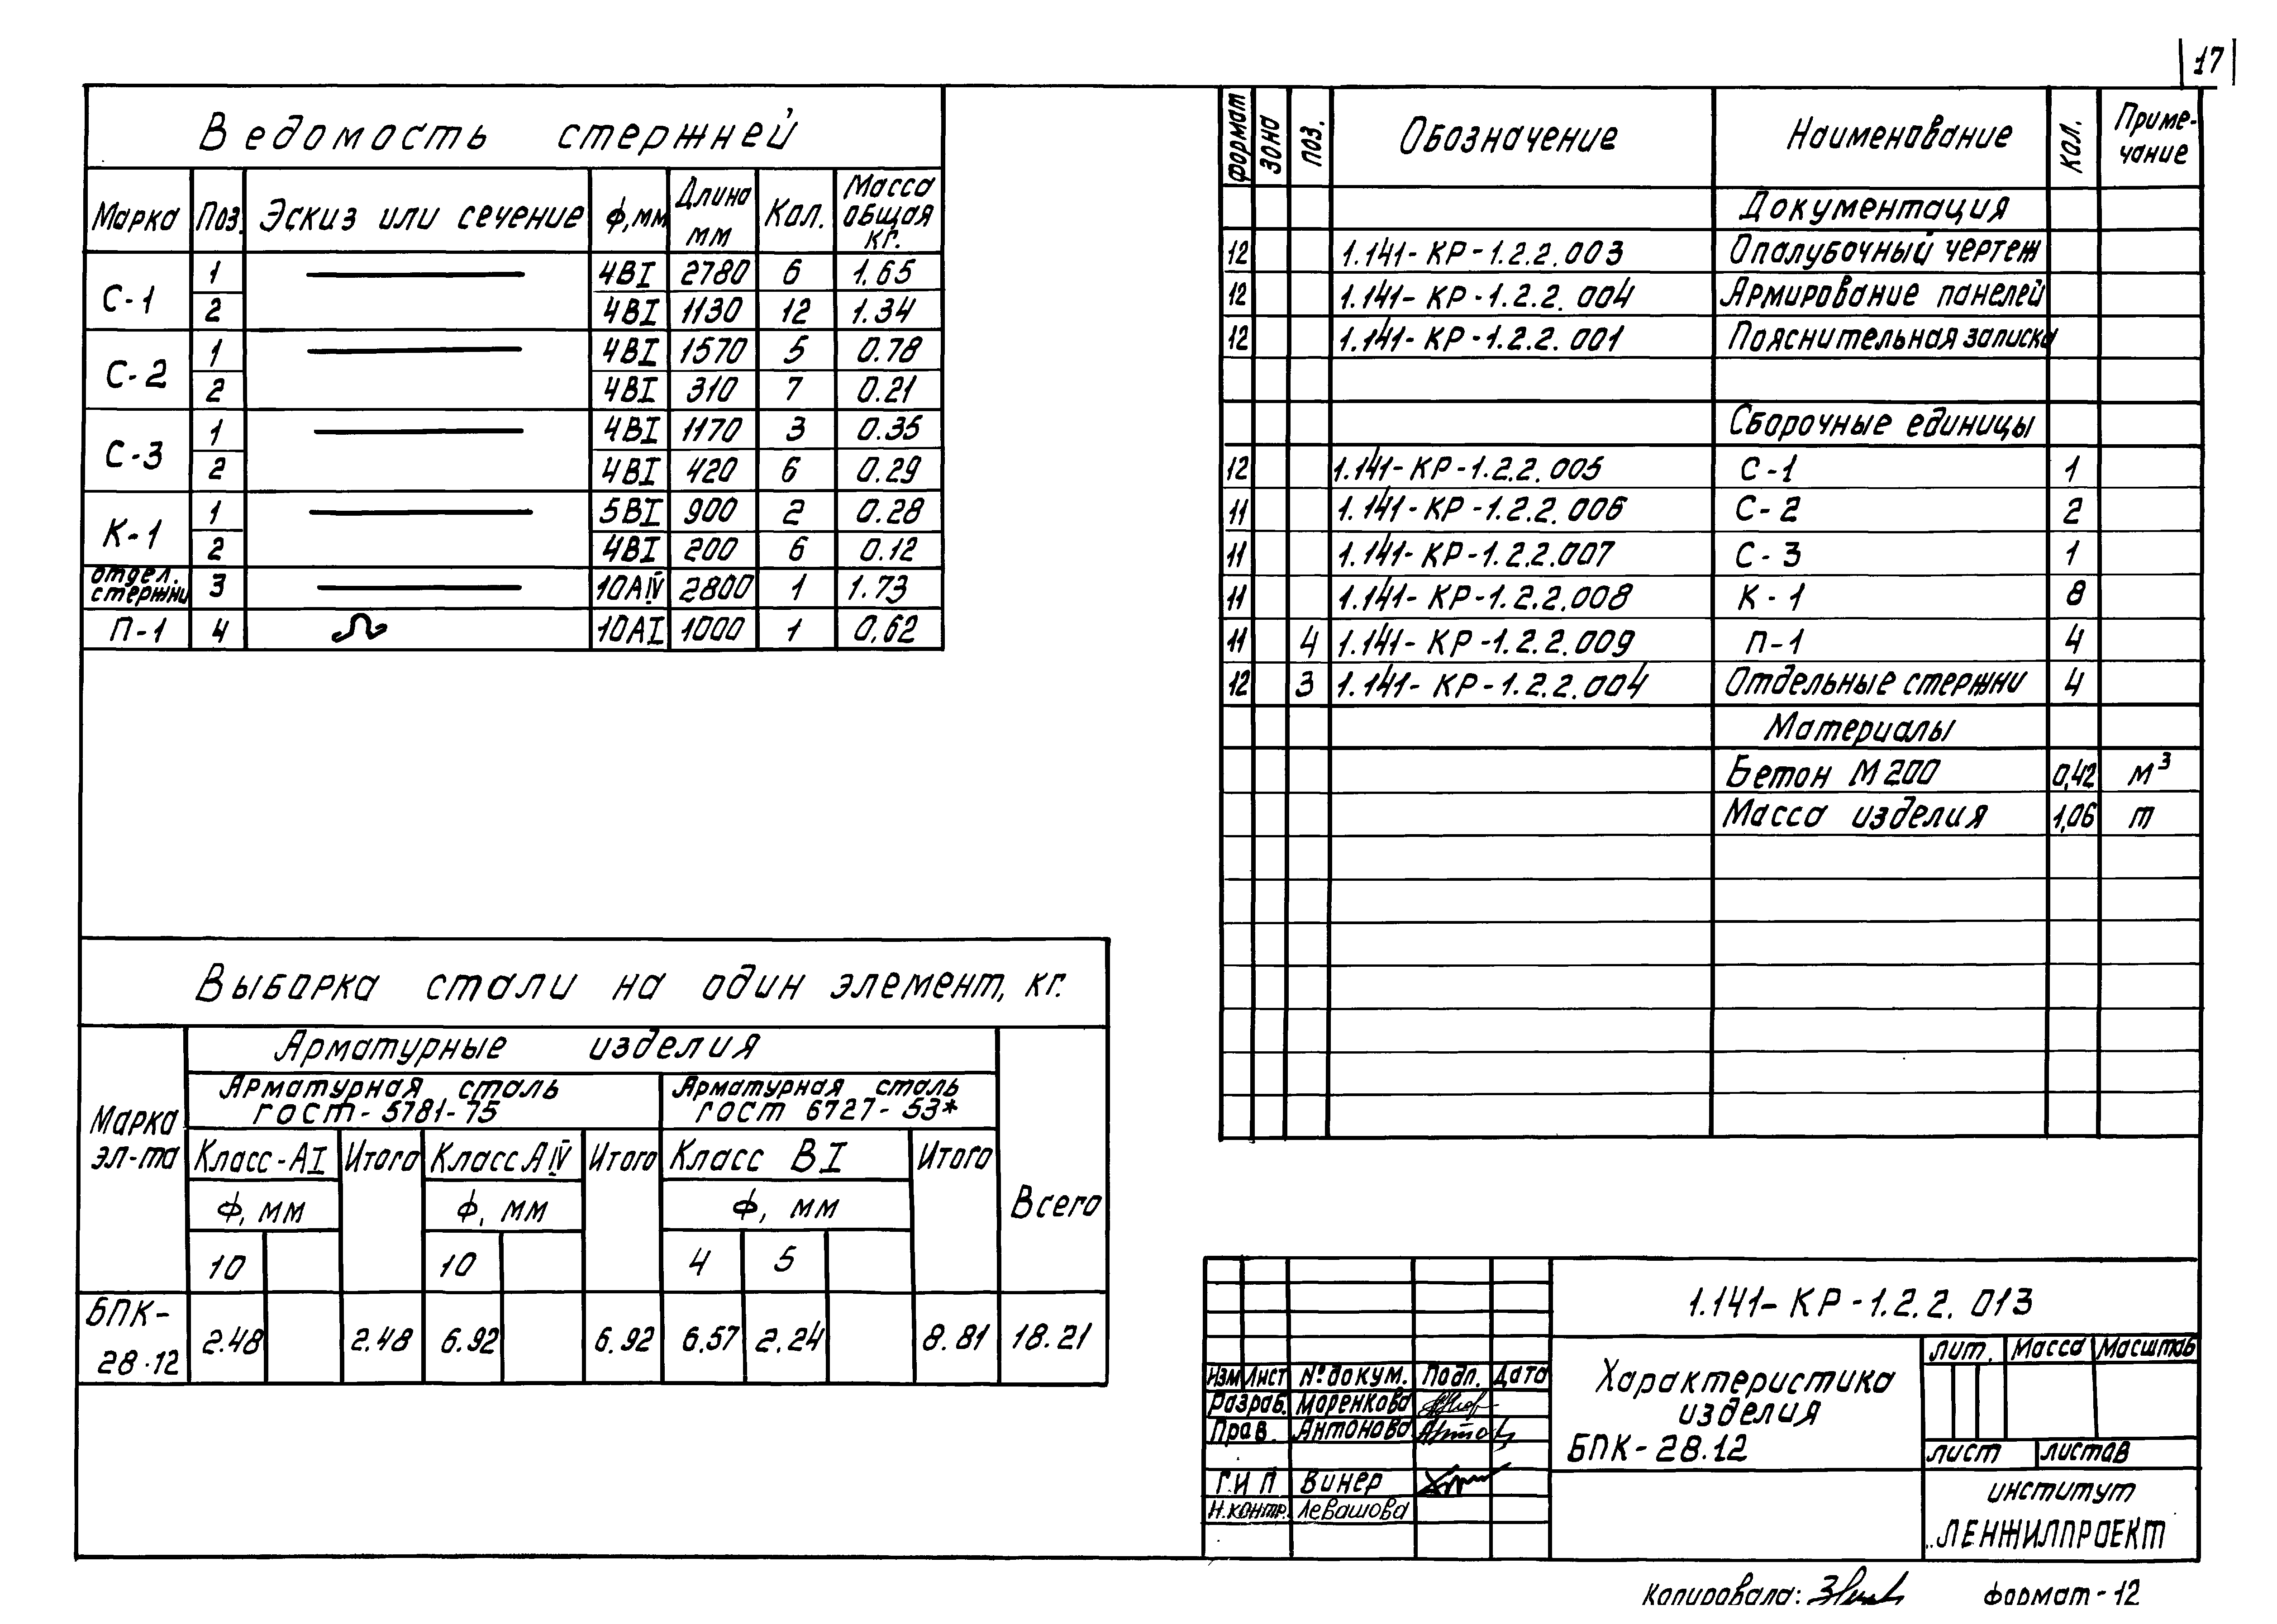 17
Ведомость стержней
Марка Поз. Эскиз или сечение ф,мм Длина мм Кол. Масса общая кг.
С-1 1 4ВI 2780 6 1.65
2 4ВI 1130 12 1.34
С-2 1 4ВI 1570 5 0.78
2 4ВI 310 7 0.21
С-3 1 4ВI 1170 3 0.35
2 4ВI 420 6 0.29
К-1 1 5ВI 900 2 0.28
2 4ВI 200 6 0.12
отдел. стержни 3 10АIV 2800 1 1.73
П-1 4 10АI 1000 1 0.62
формат зона поз. Обозначение Наименование кол. Приме-чание
Документация
12 1.141-КР-1.2.2.003 Опалубочный чертеж
12 1.141-КР-1.2.2.004 Армирование панелей
12 1.141-КР-1.2.2.001 Пояснительная записка
Сборочные единицы
12 1.141-КР-1.2.2.005 С-1 1
11 1.141-КР-1.2.2.006 С-2 2
11 1.141-КР-1.2.2.007 С-3 1
11 1.141-КР-1.2.2.008 К-1 8
11 4 1.141-КР-1.2.2.009 П-1 4
12 3 1.141-КР-1.2.2.004 Отдельные стержни 4
Материалы
Бетон М200 0,42 м³
Масса изделия 1,06 т
Выборка стали на один элемент, кг.
Марка эл-та
Арматурные изделия
Арматурная сталь ГОСТ-5781-75
Арматурная сталь ГОСТ 6727-53*
Класс-АI Итого Класс АIV Итого Класс ВI Итого Всего
ф, мм ф, мм ф, мм
10 10 4 5
БПК-28.12 2.48 2.48 6.92 6.92 6.57 2.24 8.81 18.21
1.141-КР-1.2.2.013
Изм Лист № докум. Подп. Дата
Разраб. Моренкова
Пров. Антонова
ГИП Винер
Н.контр. Левашова
Характеристика
изделия
БПК-28.12
лит. Масса Масштаб
лист листов
институт
ЛЕНЖИЛПРОЕКТ
Копировала:
формат-12